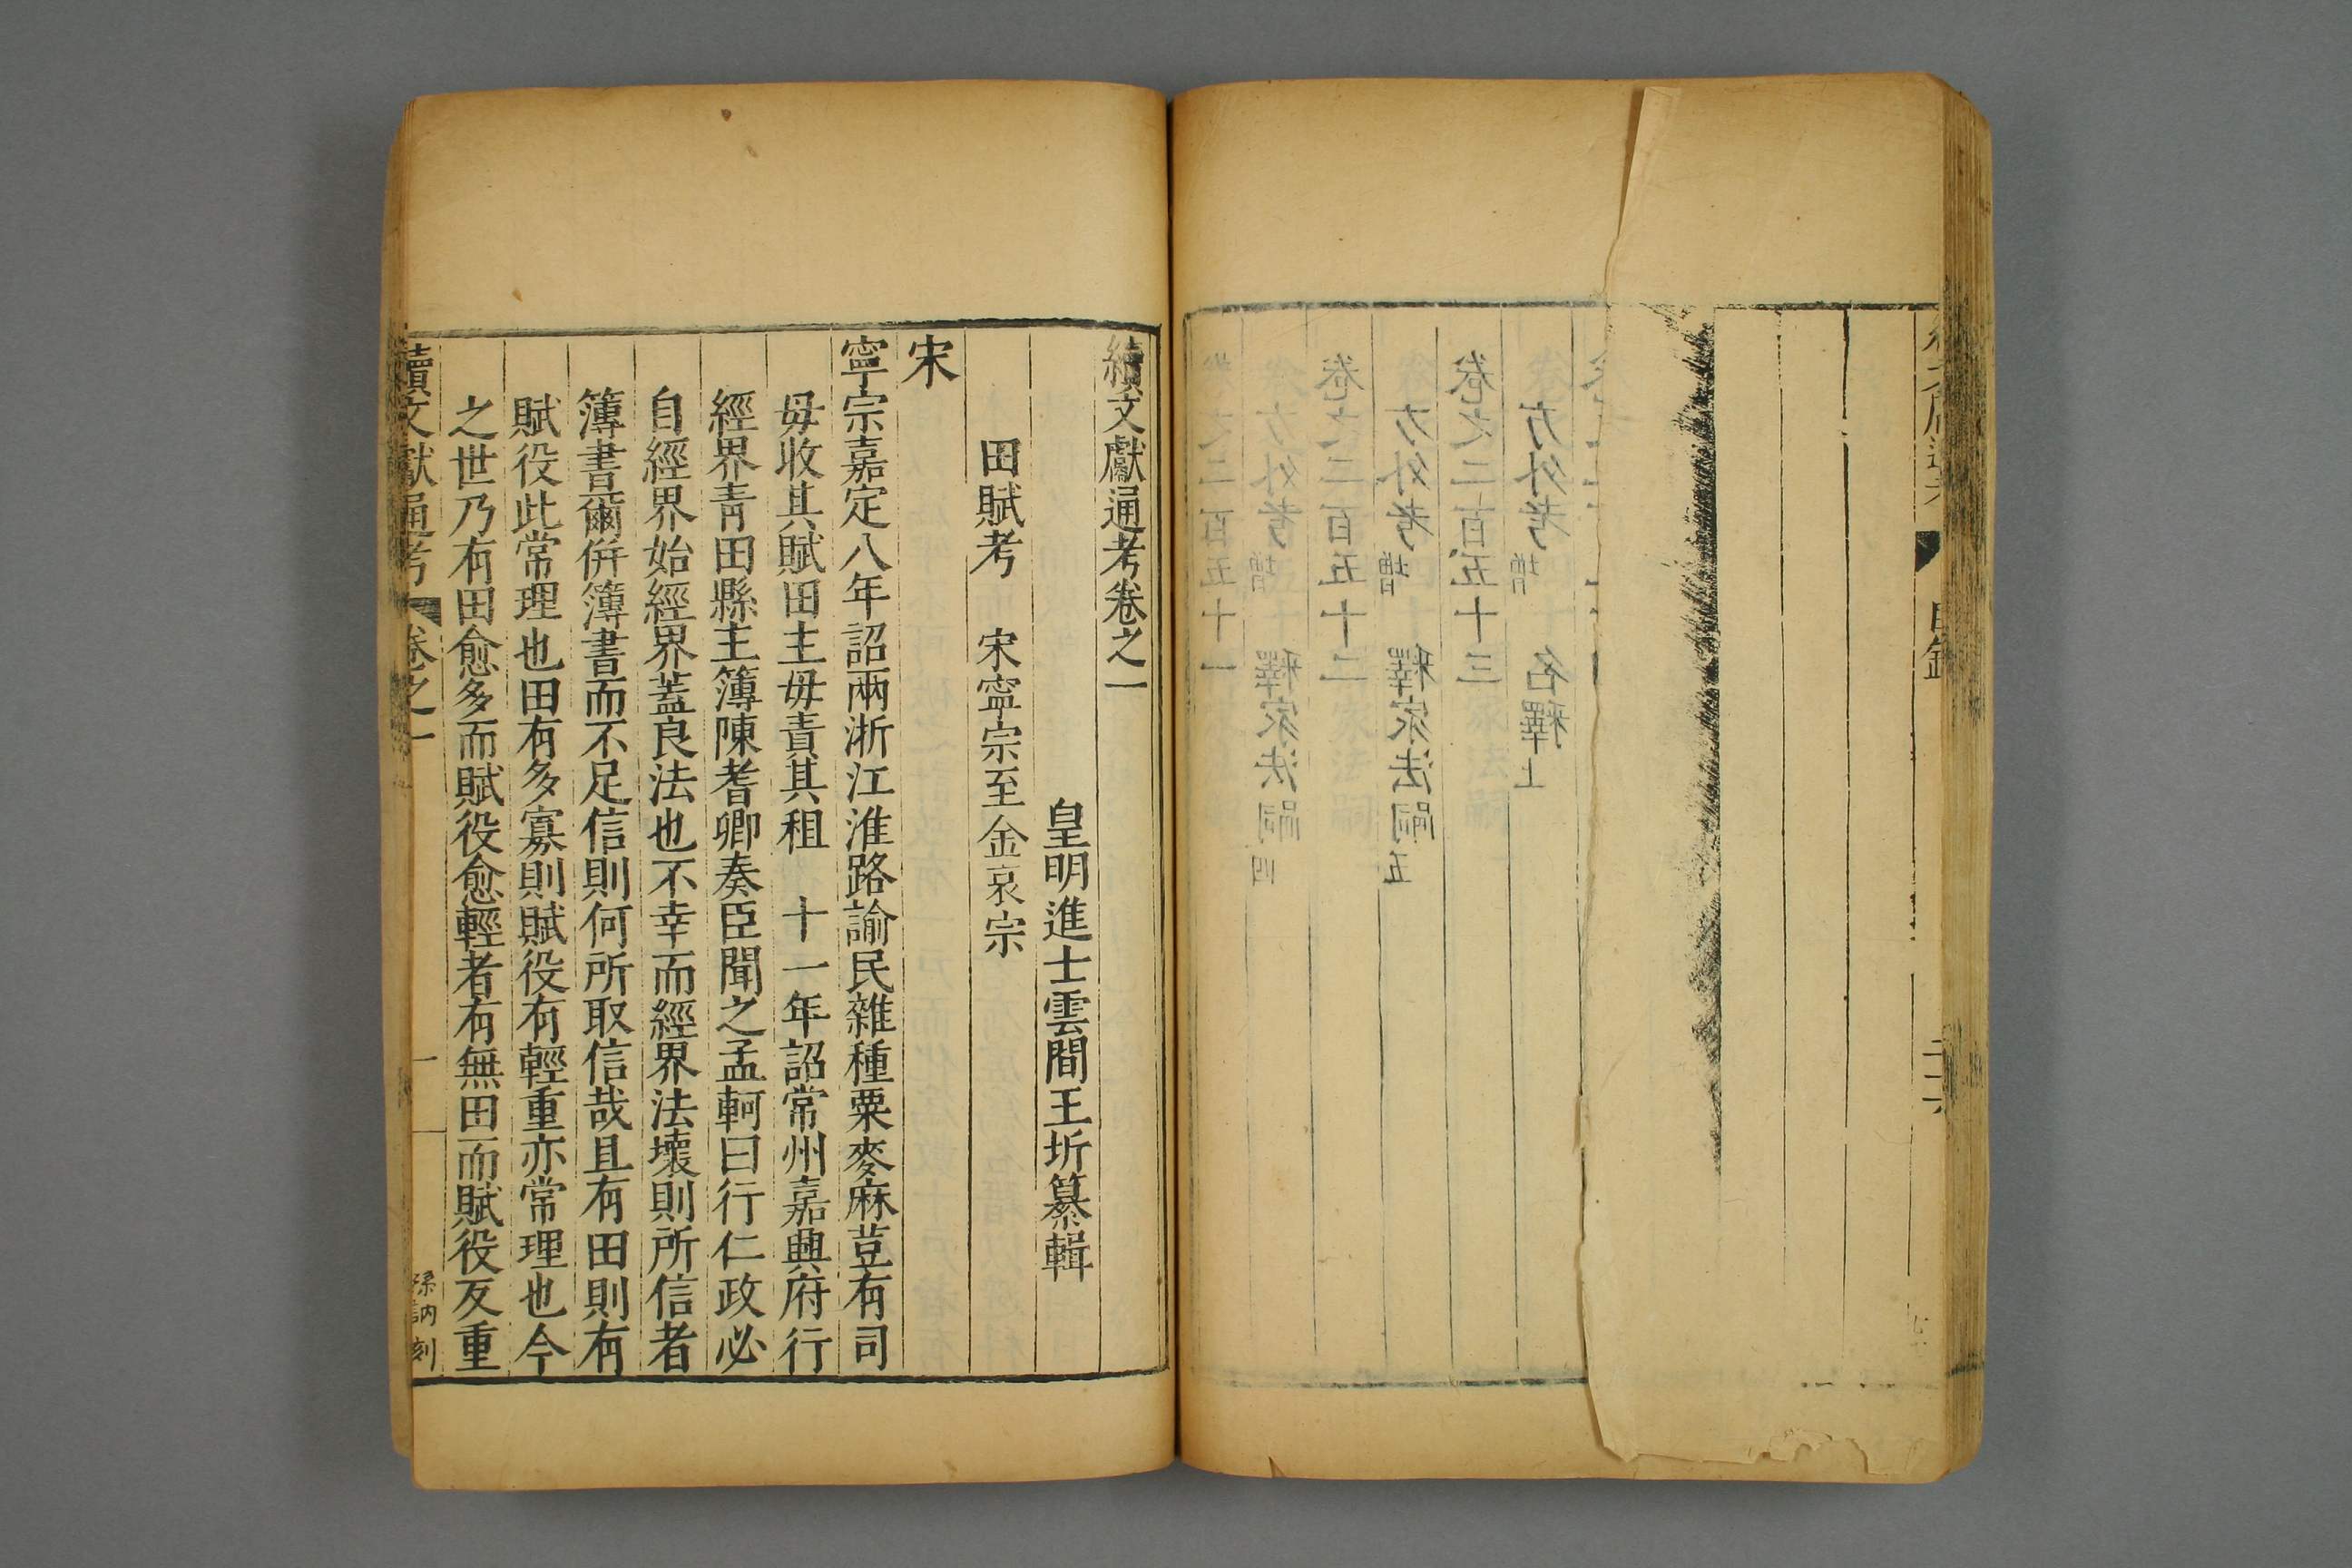 目錄
卷之二百五十三
方外考 增 名釋上
卷之二百五十二
方外考 增 釋家法嗣五
卷之二百五十一
方外考 增 釋家法嗣四
續文獻通考卷之一
皇明進士雲間王圻纂輯
田賦考 宋寧宗至金哀宗
宋
寧宗嘉定八年詔兩浙江淮路諭民雜種粟麥麻荳有司
毋收其賦田主毋責其租 十一年詔常州嘉興府行
經界青田縣主簿陳耆卿奏臣聞之孟軻曰行仁政必
自經界始經界蓋良法也不幸而經界法壞則所信者
簿書爾併簿書而不足信則何所取信哉且有田則有
賦役此常理也田有多寡則賦役有輕重亦常理也今
之世乃有田愈多而賦役愈輕者有無田而賦役反重
續文獻通考 卷之一 一 孫訥刻